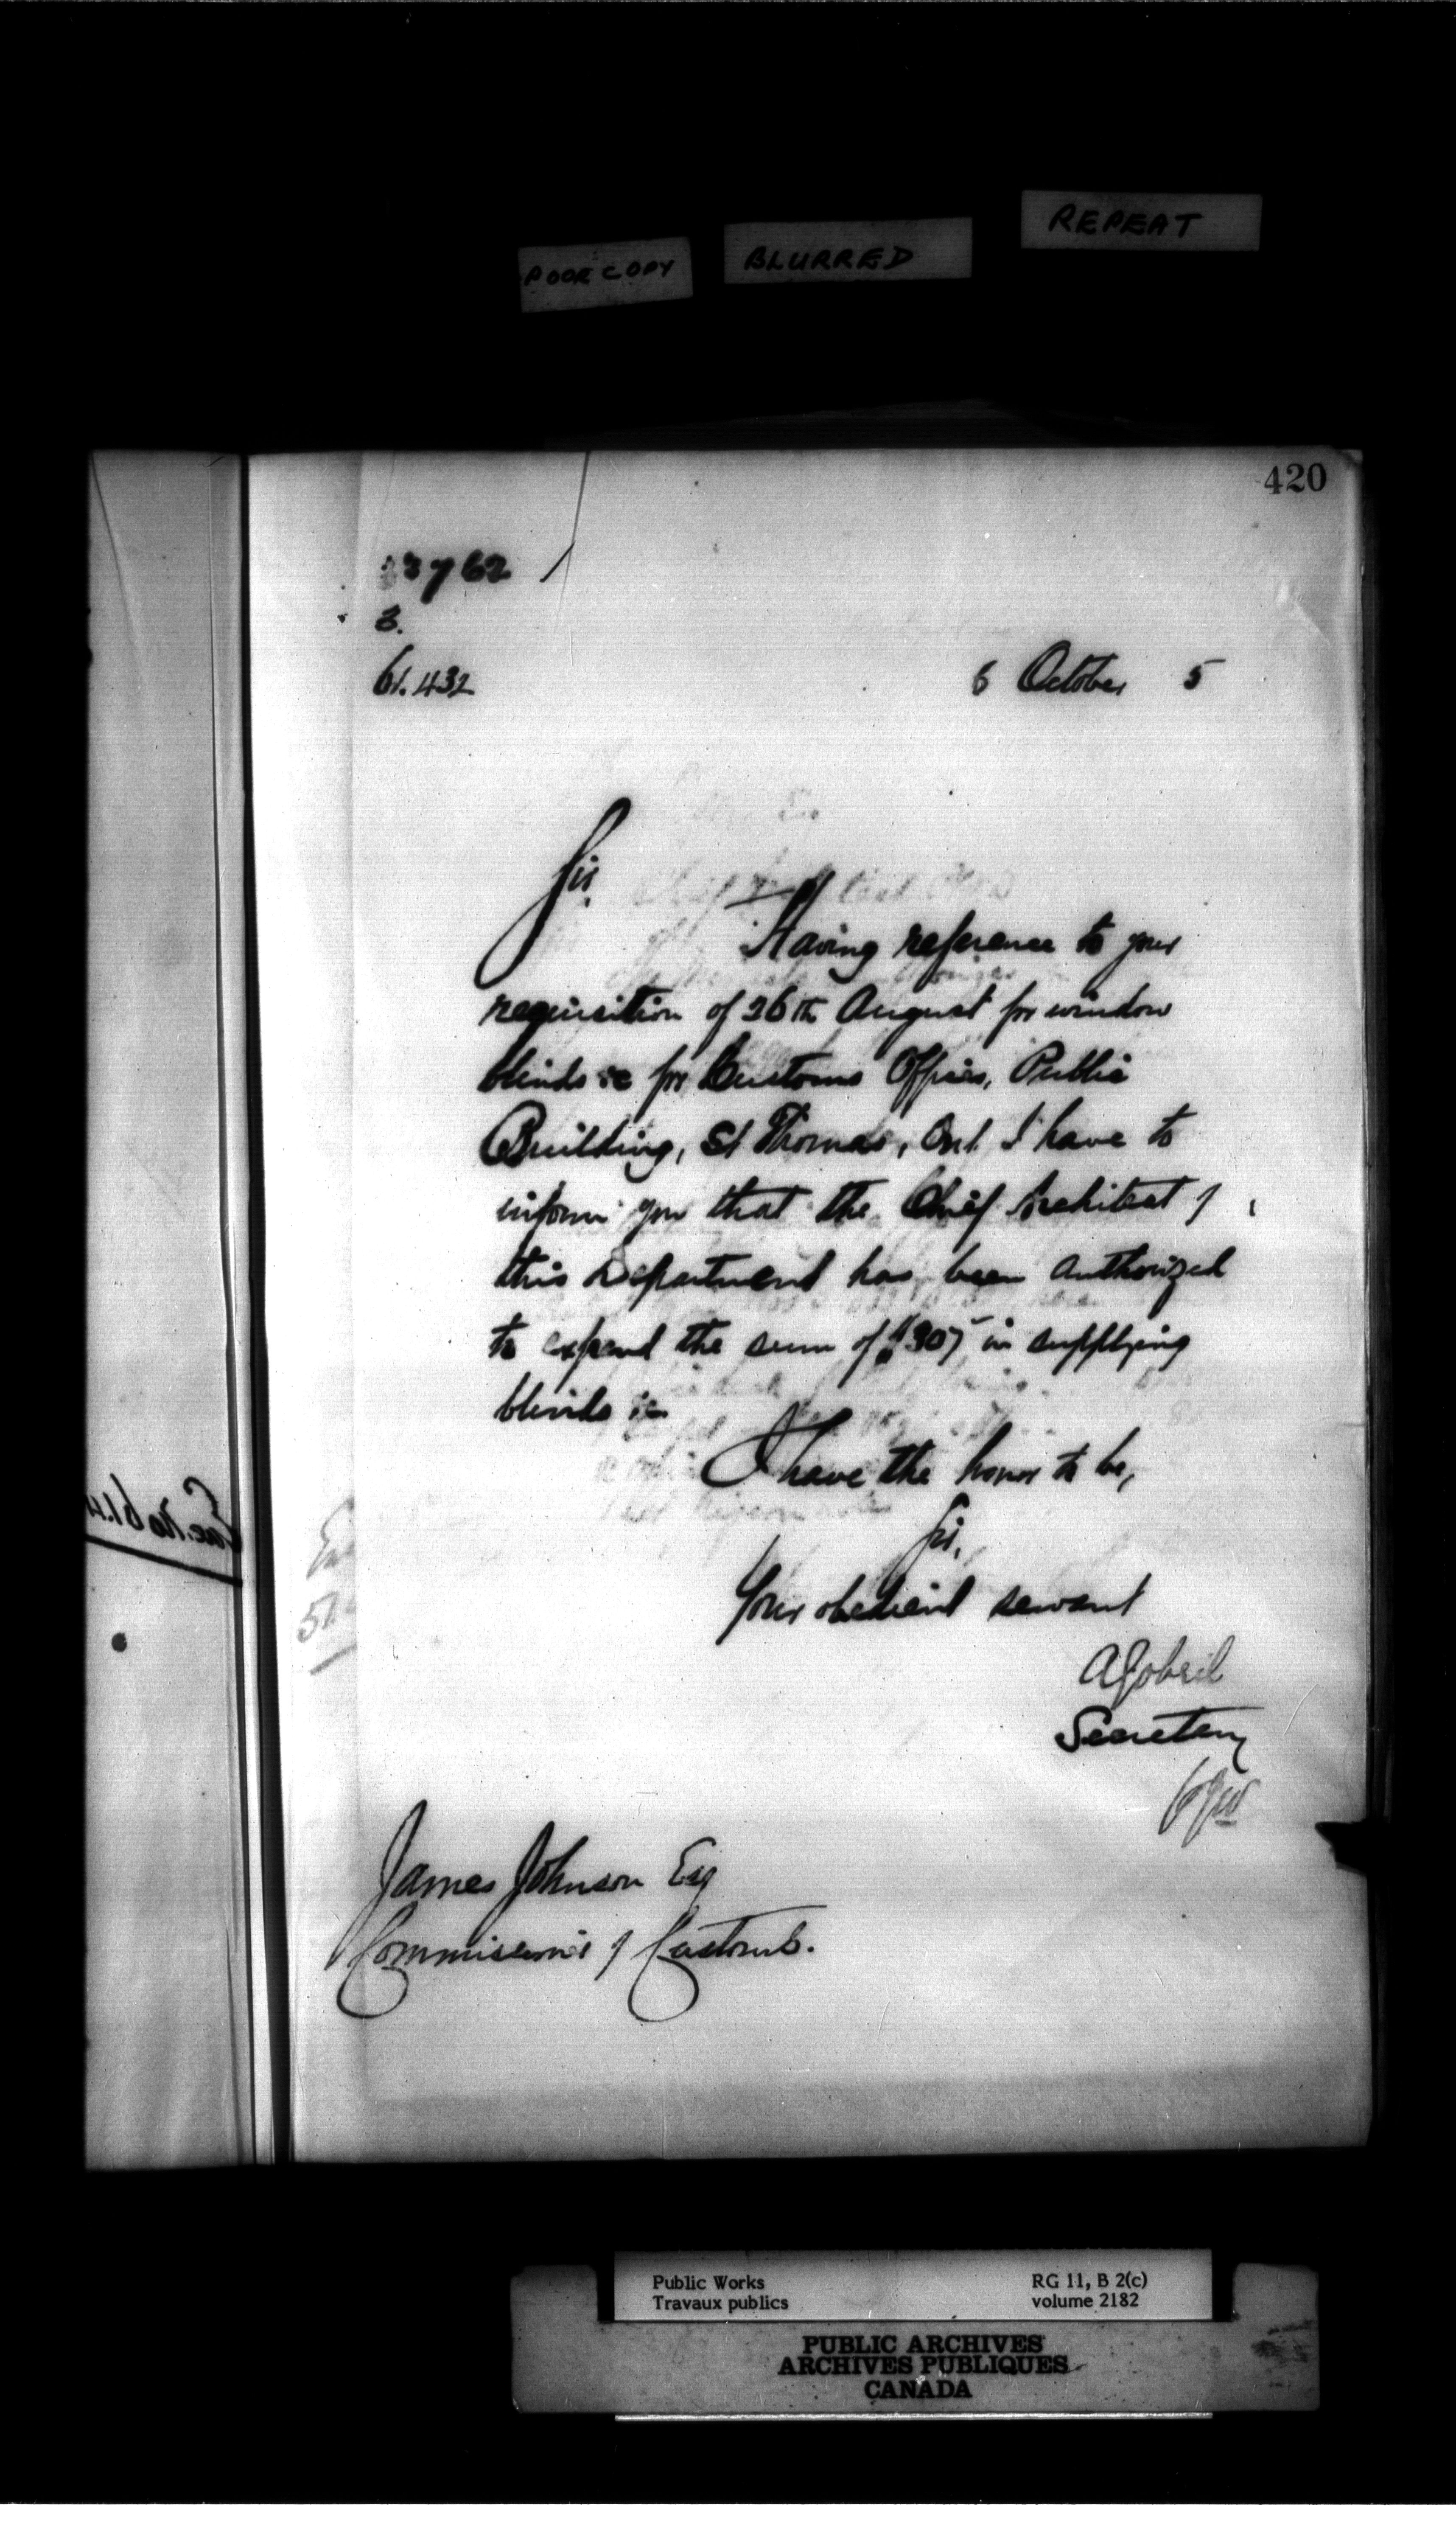 POOR COPY
BLURRED
REPEAT
420
23762
3.
61.432
6 October 5
Sir,
Having reference to your
requisition of 26th August for window
blinds &c for Customs Offices, Public
Building, St Thomas, Ont. I have to
inform you that the Chief Architect of
this Department has been authorized
to expend the sum of $307 in supplying
blinds &c
I have the honor to be,
Sir,
Your obedient servant
A Gobeil
Secretary
James Johnson Esq
Commissioner of Customs.
Public Works
Travaux publics
RG 11, B 2(c)
volume 2182
PUBLIC ARCHIVES
ARCHIVES PUBLIQUES
CANADA